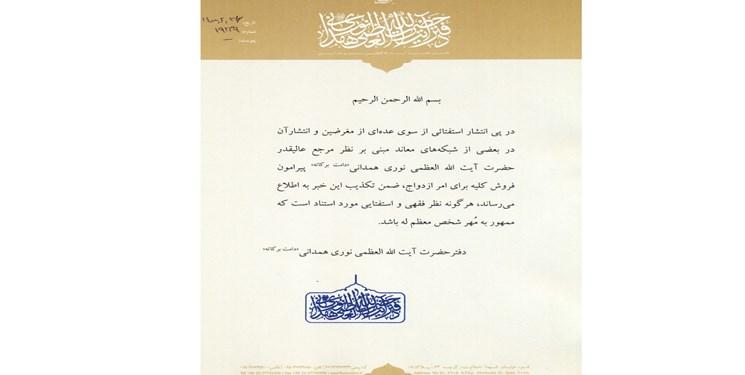 تاریخ:
شماره: ۱۹۲۳۹
پیوست:
بسم الله الرحمن الرحیم
در پی انتشار استفتائی از سوی عده‌ای از مغرضین و انتشارآن
در بعضی از شبکه‌های معاند مبنی بر نظر مرجع عالیقدر
حضرت آیت الله العظمی نوری همدانی «دامت برکاته» پیرامون
فروش کلیه برای امر ازدواج، ضمن تکذیب این خبر به اطلاع
می‌رساند، هرگونه نظر فقهی و استفتایی مورد استناد است که
ممهور به مُهر شخص معظم له باشد.
دفترحضرت آیت الله العظمی نوری همدانی «دامت برکاته»